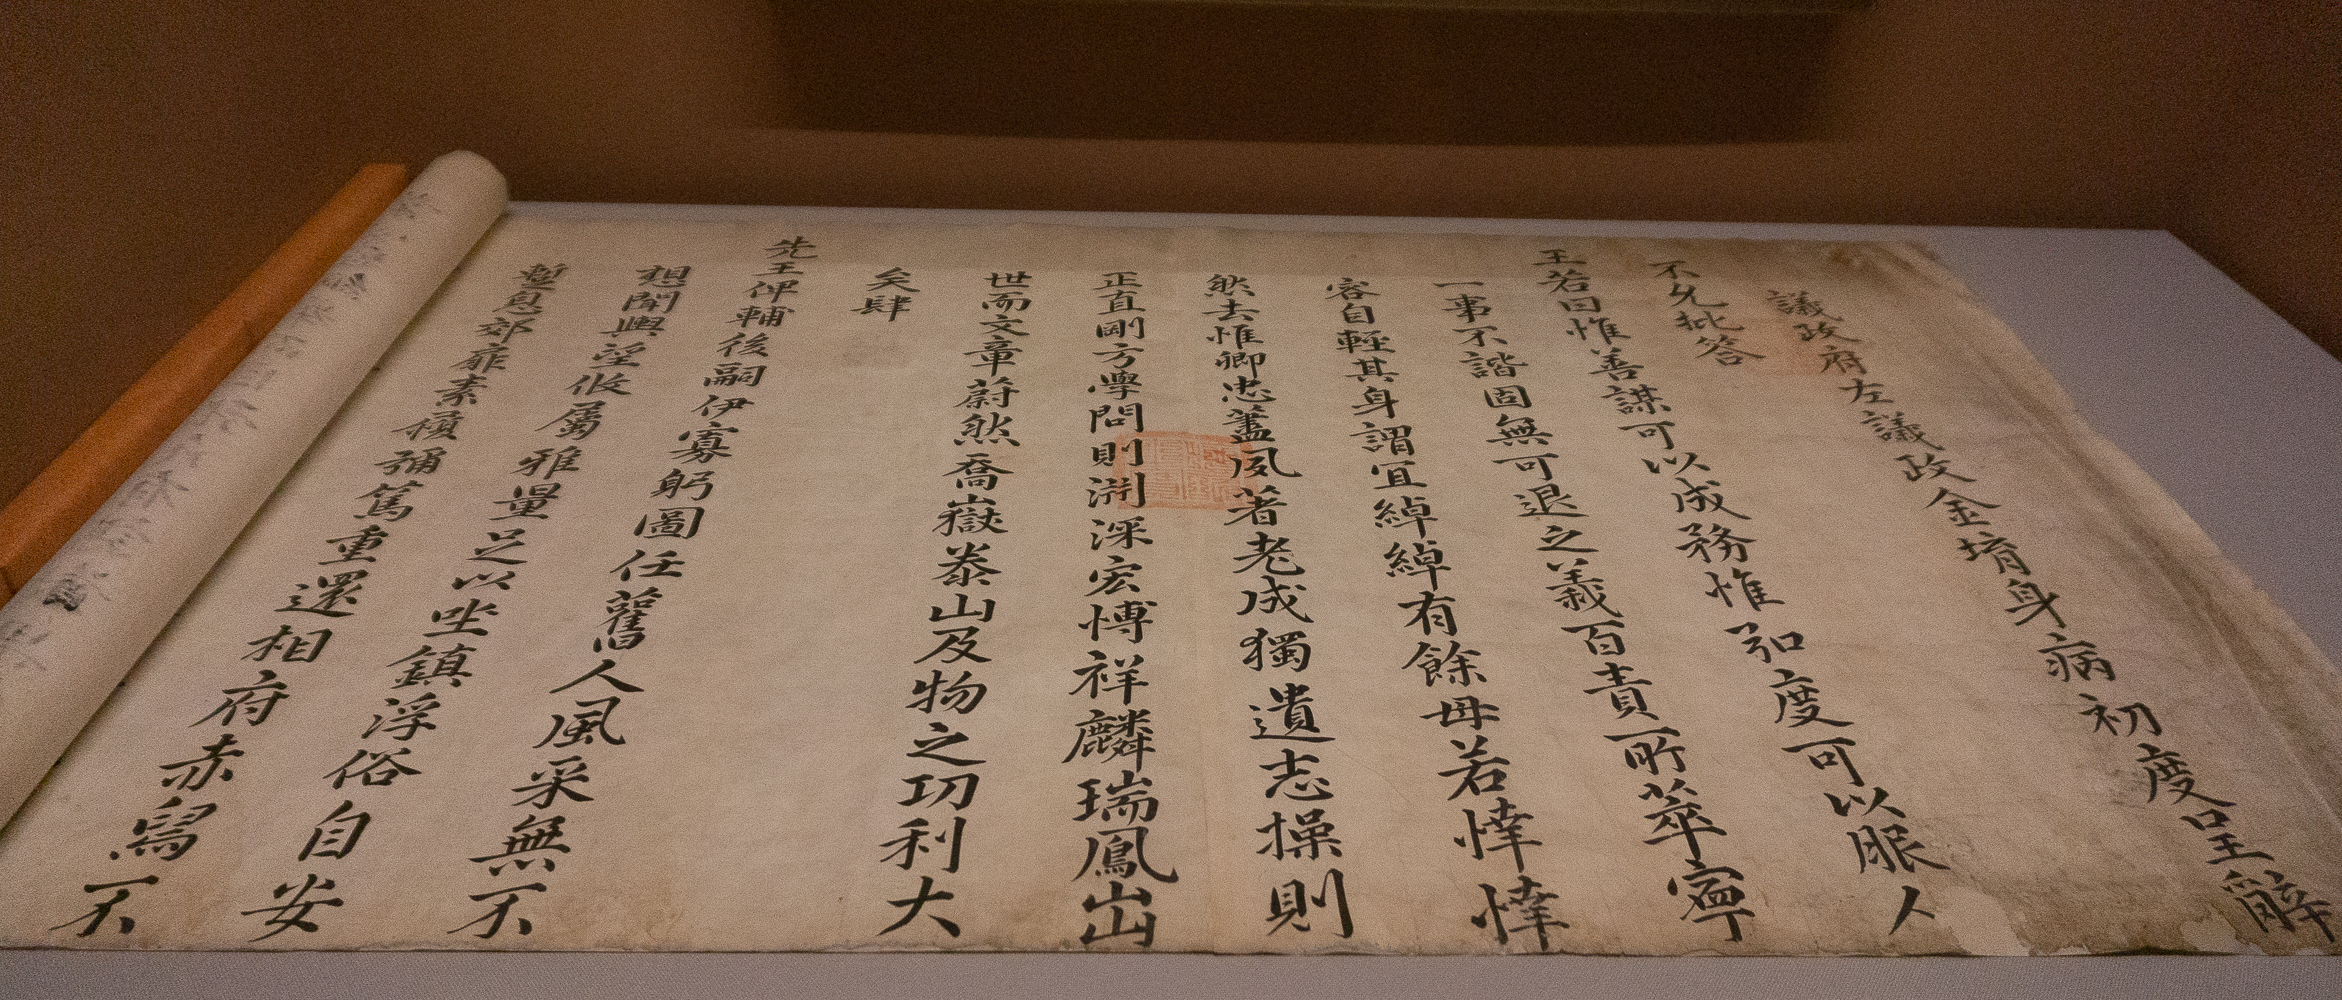 議政府左議政金堉身病初度呈辭
不允批答
王若曰惟善謀可以成務惟弘度可以服人
一事不諧固無可退之義百責所萃寧
容自輕其身謂宜綽綽有餘毋若悻悻
然去惟卿忠藎夙著老成獨遺志操則
正直剛方學問則淵深宏博祥麟瑞鳳出
世而文章蔚然喬嶽泰山及物之功利大
矣肆
先王俾輔後嗣伊寡躬圖任舊人風采無不
想聞輿望攸屬雅量足以坐鎮浮俗自安
暫息郊扉素積彌篤重還相府赤舄不